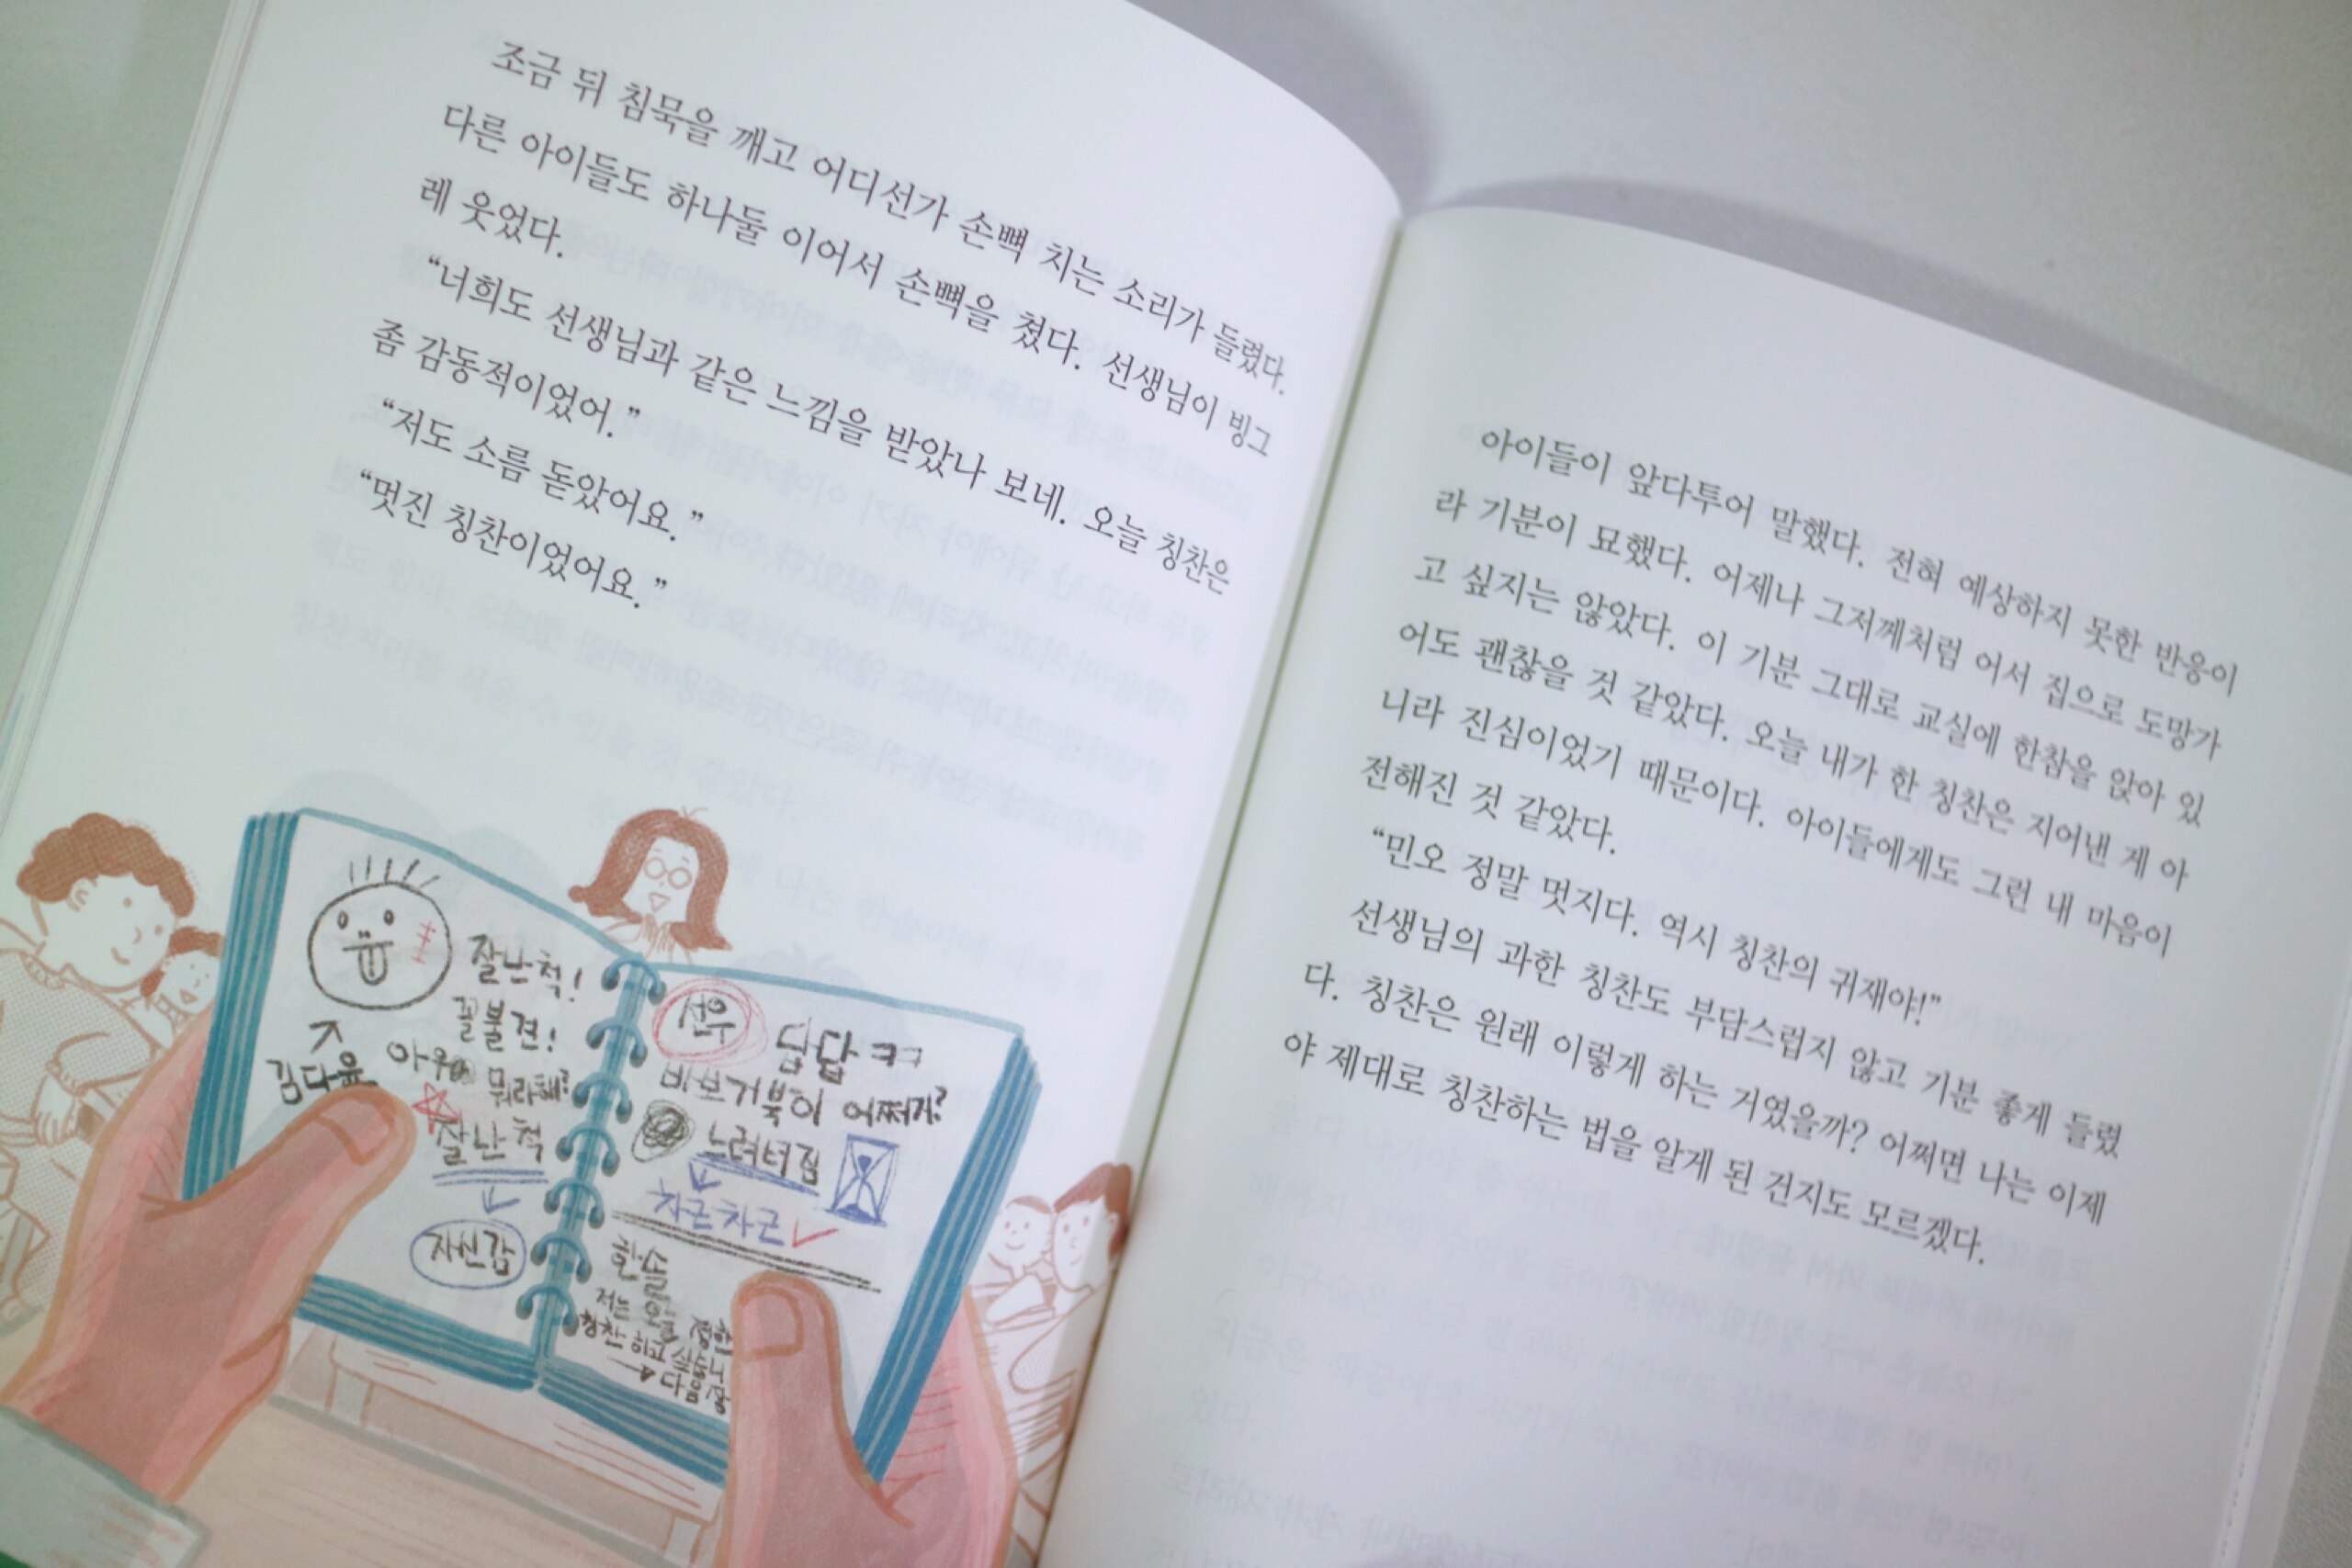 조금 뒤 침묵을 깨고 어디선가 손뼉 치는 소리가 들렸다.
다른 아이들도 하나둘 이어서 손뼉을 쳤다. 선생님이 빙그
레 웃었다.
“너희도 선생님과 같은 느낌을 받았나 보네. 오늘 칭찬은
좀 감동적이었어.”
“저도 소름 돋았어요.”
“멋진 칭찬이었어요.”
잘난 척!
꼴불견!
ㅈ
김다율
아우
뭐라해?
잘난 척
자신감
선우
답답 ㅋㅋ
바보 거북이 어쩌지?
느려터짐
차근차근
한솔
저는 오늘
칭찬 하고 싶
다음 장
아이들이 앞다투어 말했다. 전혀 예상하지 못한 반응이
라 기분이 묘했다. 어제나 그저께처럼 어서 집으로 도망가
고 싶지는 않았다. 이 기분 그대로 교실에 한참을 앉아 있
어도 괜찮을 것 같았다. 오늘 내가 한 칭찬은 지어낸 게 아
니라 진심이었기 때문이다. 아이들에게도 그런 내 마음이
전해진 것 같았다.
“민오 정말 멋지다. 역시 칭찬의 귀재야!”
선생님의 과한 칭찬도 부담스럽지 않고 기분 좋게 들렸
다. 칭찬은 원래 이렇게 하는 거였을까? 어쩌면 나는 이제
야 제대로 칭찬하는 법을 알게 된 건지도 모르겠다.